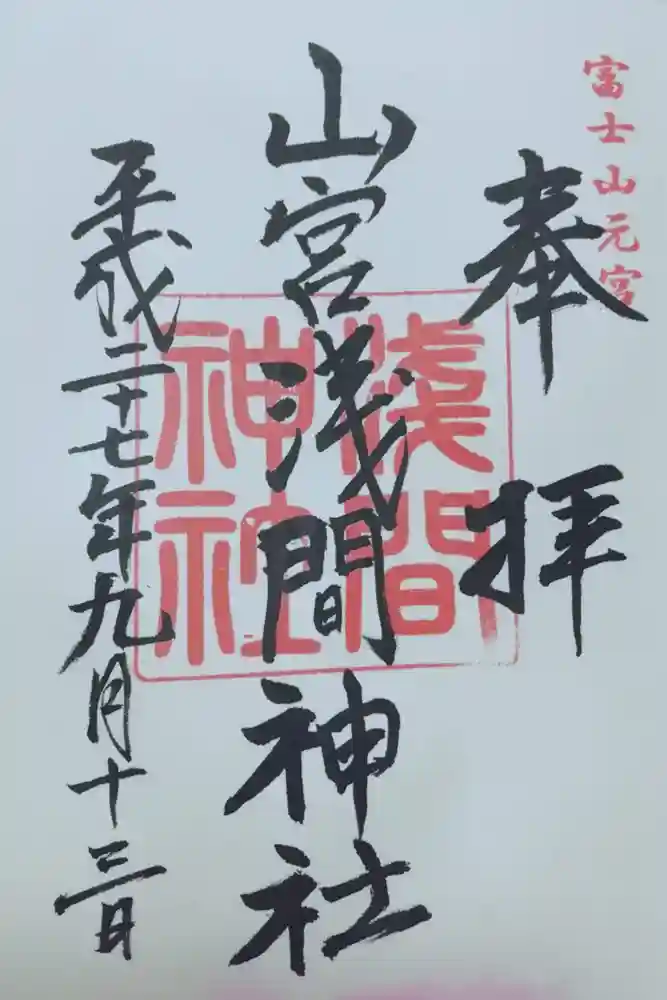 富士山元宮
奉拝
山宮浅間神社
浅間
神社
平成二十七年九月十三日